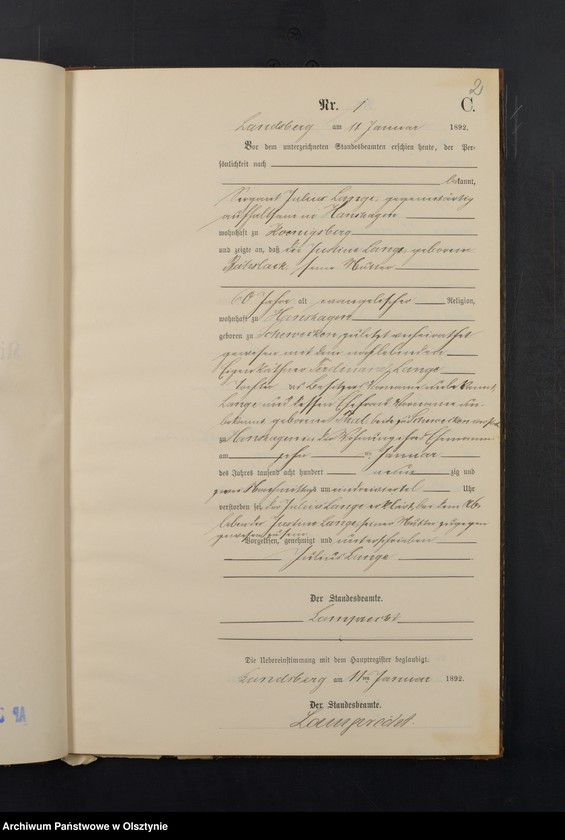 2
Nr. 1 C.
Landsberg am 11 Januar 1892.
Vor dem unterzeichneten Standesbeamten erschien heute, der Per-
sönlichkeit nach
bekannt,
Sergeant Julius Lange, gegenwärtig
aufhaltsam in Hanshagen
wohnhaft zu Koenigsberg
und zeigte an, daß die Justine Lange geborene
seine Mutter
60 Jahre alt evangelischer Religion,
wohnhaft zu Hanshagen
geboren zu zuletzt verheirathet
gewesen mit dem noch lebenden
Eigenkäthner Ferdinand Lange
Tochter des Besitzers Vorname unbekannt,
Lange und dessen Ehefrau Vorname un-
bekannt geborene beide zu
zu Hanshagen in der Wohnung des Ehemanns
am zehn ten Januar
des Jahres tausend acht hundert neun zig und
zwei Nachmittags um Uhr
verstorben sei, der Julius Lange erklärt, bei dem Ab-
leben der Justine Lange, seiner Mutter zugegen
gewesen zu sein
Vorgelesen, genehmigt und unterschrieben
Julius Lange
Der Standesbeamte.
Lamprecht
Die Uebereinstimmung mit dem Hauptregister beglaubigt.
Landsberg am 11ten Januar 1892.
Der Standesbeamte.
Lamprecht.
AP
Archiwum Państwowe w Olsztynie